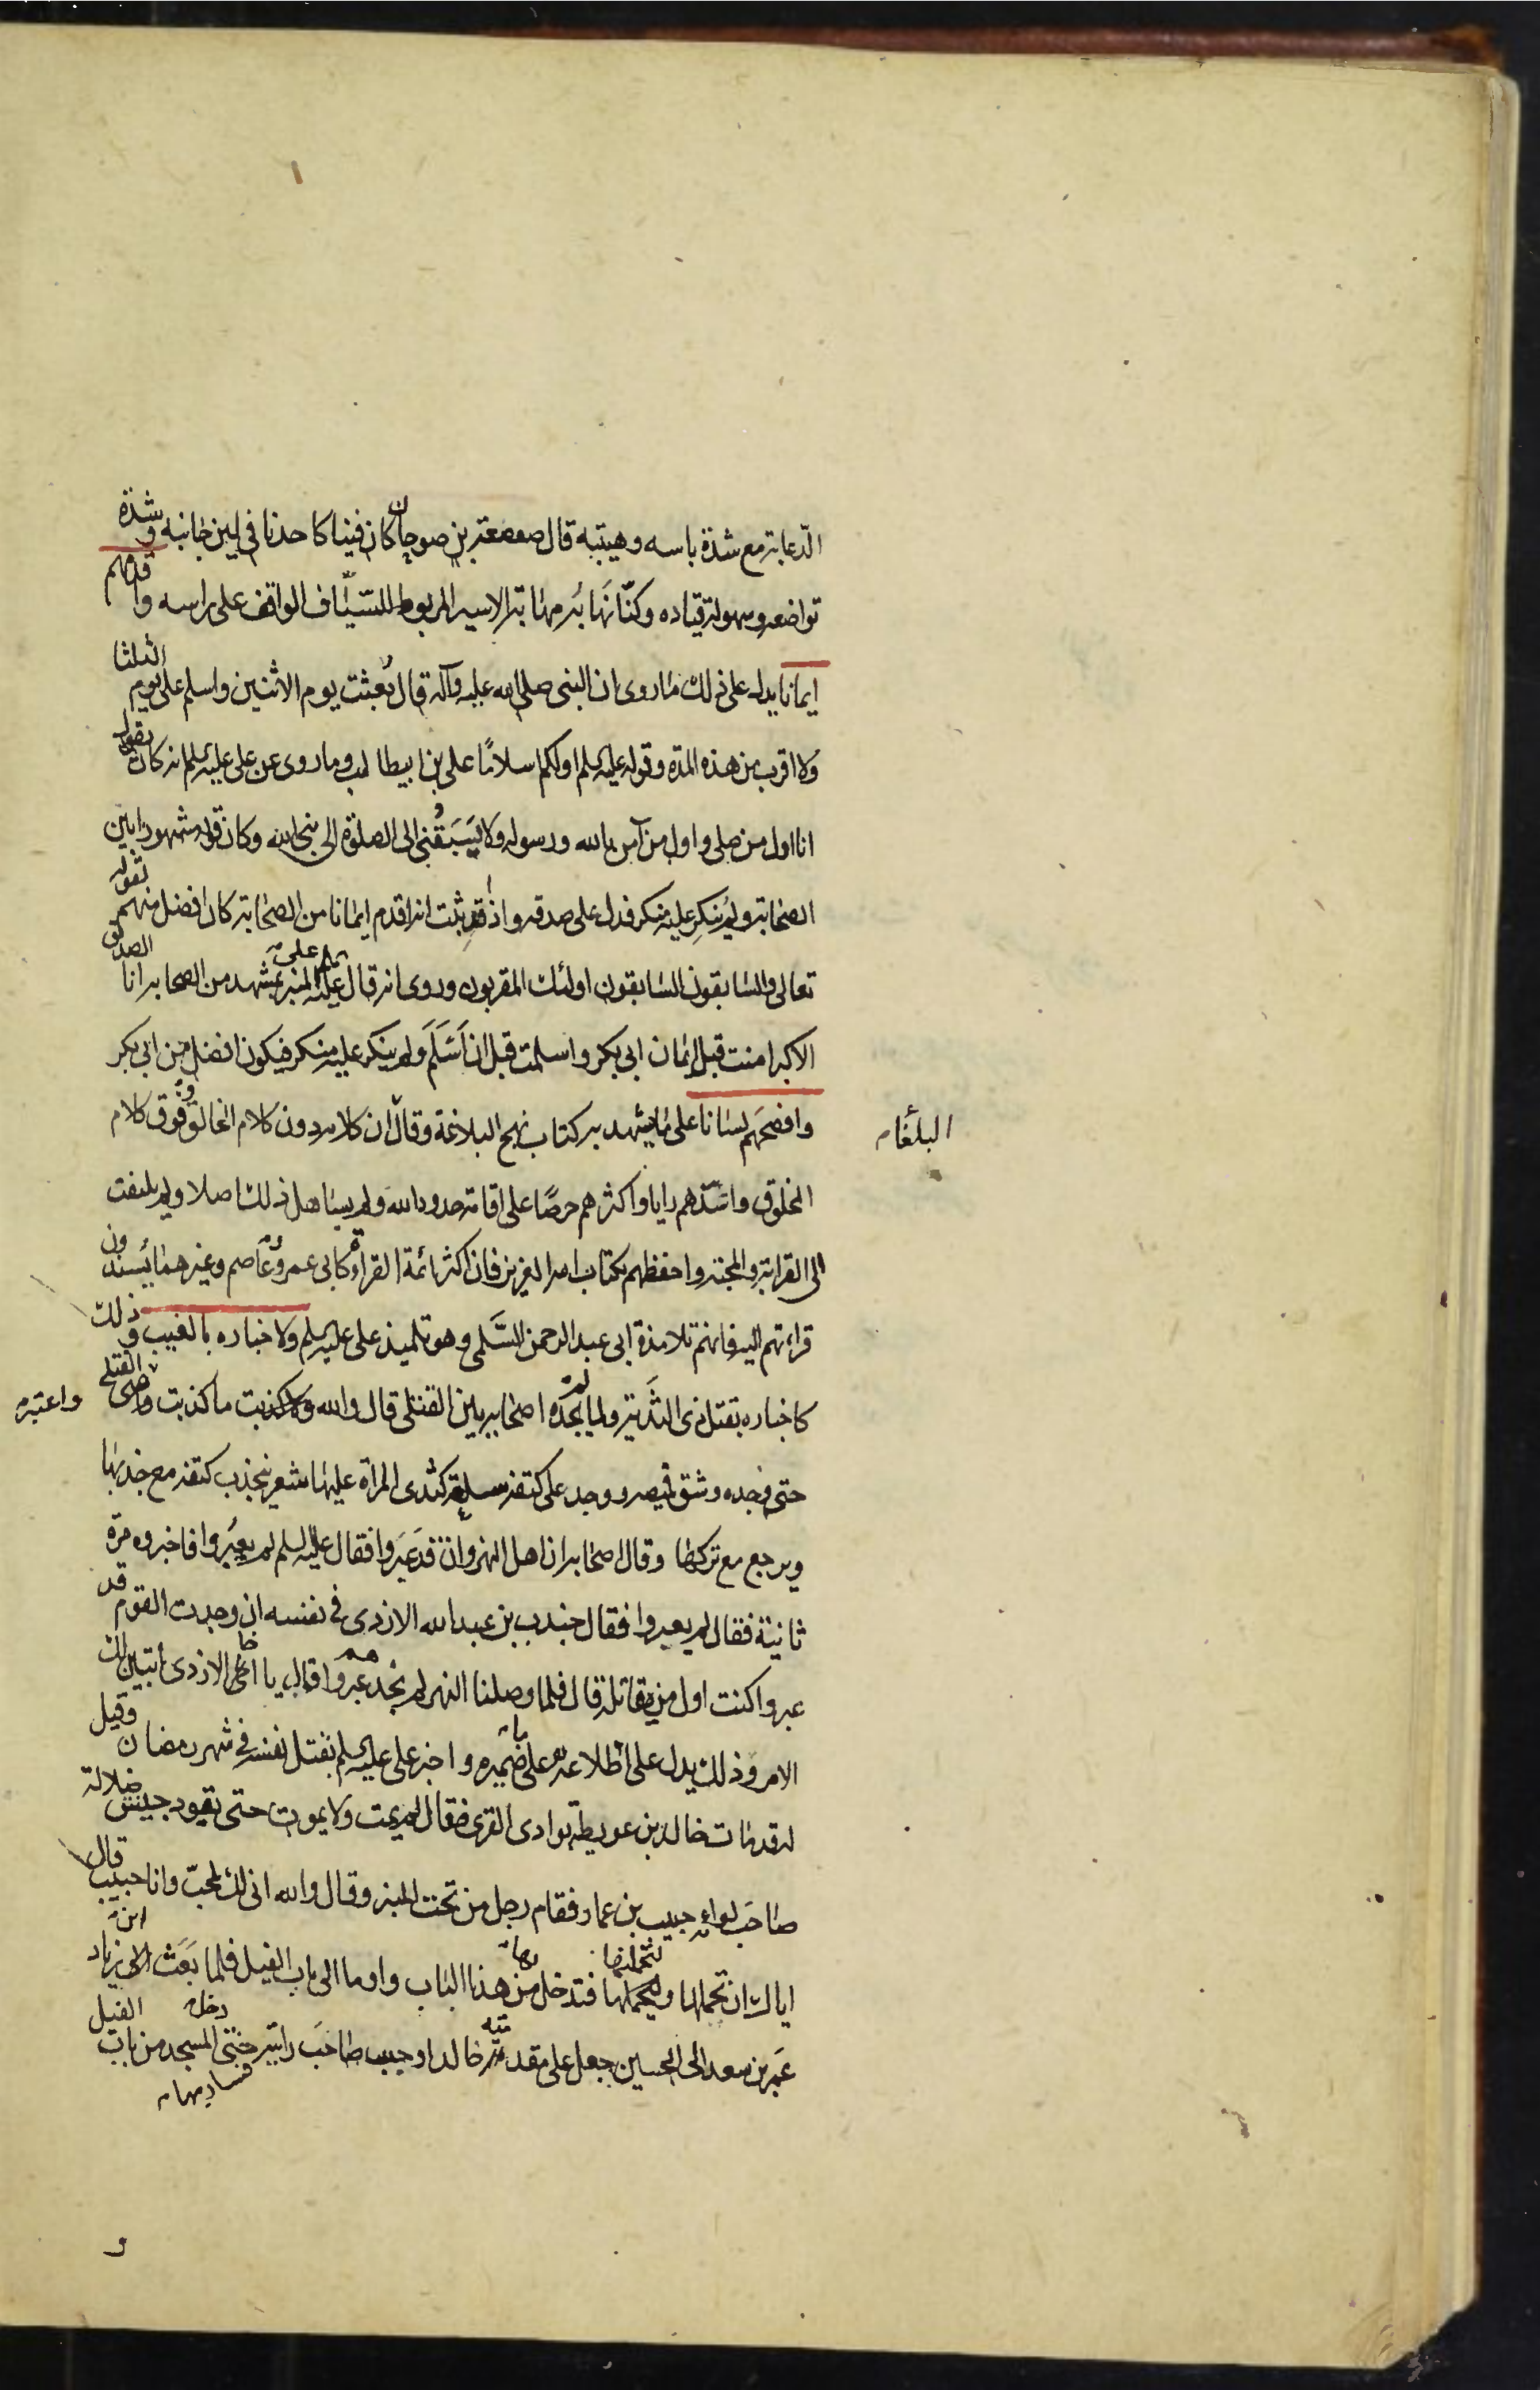 الدعابة مع شدة باسه وهيبته قال صعصعة بن صوحان كان فينا كاحدنا في لين جانبه وشدة
تواضعه وسهولة قياده وكنا نهابه مهابة الاسير المربوط للسياف الواقف على راسه واقدمهم
ايمانا يدل على ذلك ما روى ان النبى صلى الله عليه وآله قال بُعثت يوم الاثنين واسلم على يوم الثلثا
ولا اقرب من هذه المدة وقوله عليه السلم اولكم اسلامًا على بن ابيطالب وما روى عن على عليه السلم انه كان يقول
انا اول من صلى واول من آمن بالله ورسوله ولا يَسبَقُنى الى الصلوة الى نبى الله وكان قوله مشهورا بين
الصحابة ولم يُنكِر عليه منكر فدل على صدقه واذا قد ثبت انه اقدم ايمانا من الصحابة كان افضل منهم لقوله
تعالى والسابقون السابقون اولئك المقربون وروى انه قال على المنبر بمشهد من الصحابة انا الصديق
الاكبر امنت قبل ايمان ابى بكر واسلمت قبل ان اَسلَمَ ولم ينكر عليه منكر فيكون افضل من ابى بكر
وافصحهم لسانا على ما يشهد به كتاب نهج البلاغة وقال ان كلامه دون كلام الخالق وفوق كلام
البلغاء
المخلوق واسدّهم رايا واكثرهم حرصًا على اقامة حدود الله ولم يساهل فى ذلك اصلا ولم يلتفت
الى القرابة والمحبة واحفظهم لكتاب الله العزيز فان اكثر ائمة القراءة كابى عمرو وعاصم وغيرهما يُسندون
قراءتهم اليه فانهم تلامذة ابى عبد الرحمن السَّلمى وهو تلميذ على عليه السلم ولاخباره بالغيب وذلك
كاخباره بقتل ذى الثَدية ولما لم يجده اصحابه بين القتلى قال والله ما كذبت ولا كذبت القتلى
واعتبر
حتى وجده وشق قميصه ووجد على كتفه سلعة كثدى المراة عليها شعر ينجذب كتفه مع جذبها
ويرجع مع تركها وقال اصحابه ان اهل النهروان قد عَبَروا فقال عليه السلم لم يعبُروا فاخبروه مرة
ثانية فقال لم يعبروا فقال جندب بن عبد الله الازدى فى نفسه ان وجدت القوم قد
عبروا كنت اول من يقاتله قال فلما وصلنا النهر لم نجدهم عبروا فقال يا اخا الازدى اتبين لك
الامر وذلك يدل على اطلاعه على ما فى ضميره واخبر على عليه السلم بقتل نفسه فى شهر رمضان وقيل
له قد مات خالد بن عويطة بوادى القرى فقال لم يمت ولا يموت حتى يقود جيش ضلالة
صاحب لوائه حبيب بن عمار فقام رجل من تحت المنبر وقال والله انى لك لمحبّ وانا حبيب قال
اياك ان تحملها ولتحملنها فتدخل بها من هذا الباب واوما الى باب الفيل فلما بَعَث ابن زياد
عمر بن سعد الى الحسين جعل على مقدمته خالدا وحبيب صاحب رايته حتى دخل المسجد من باب الفيل
فسار بها
و